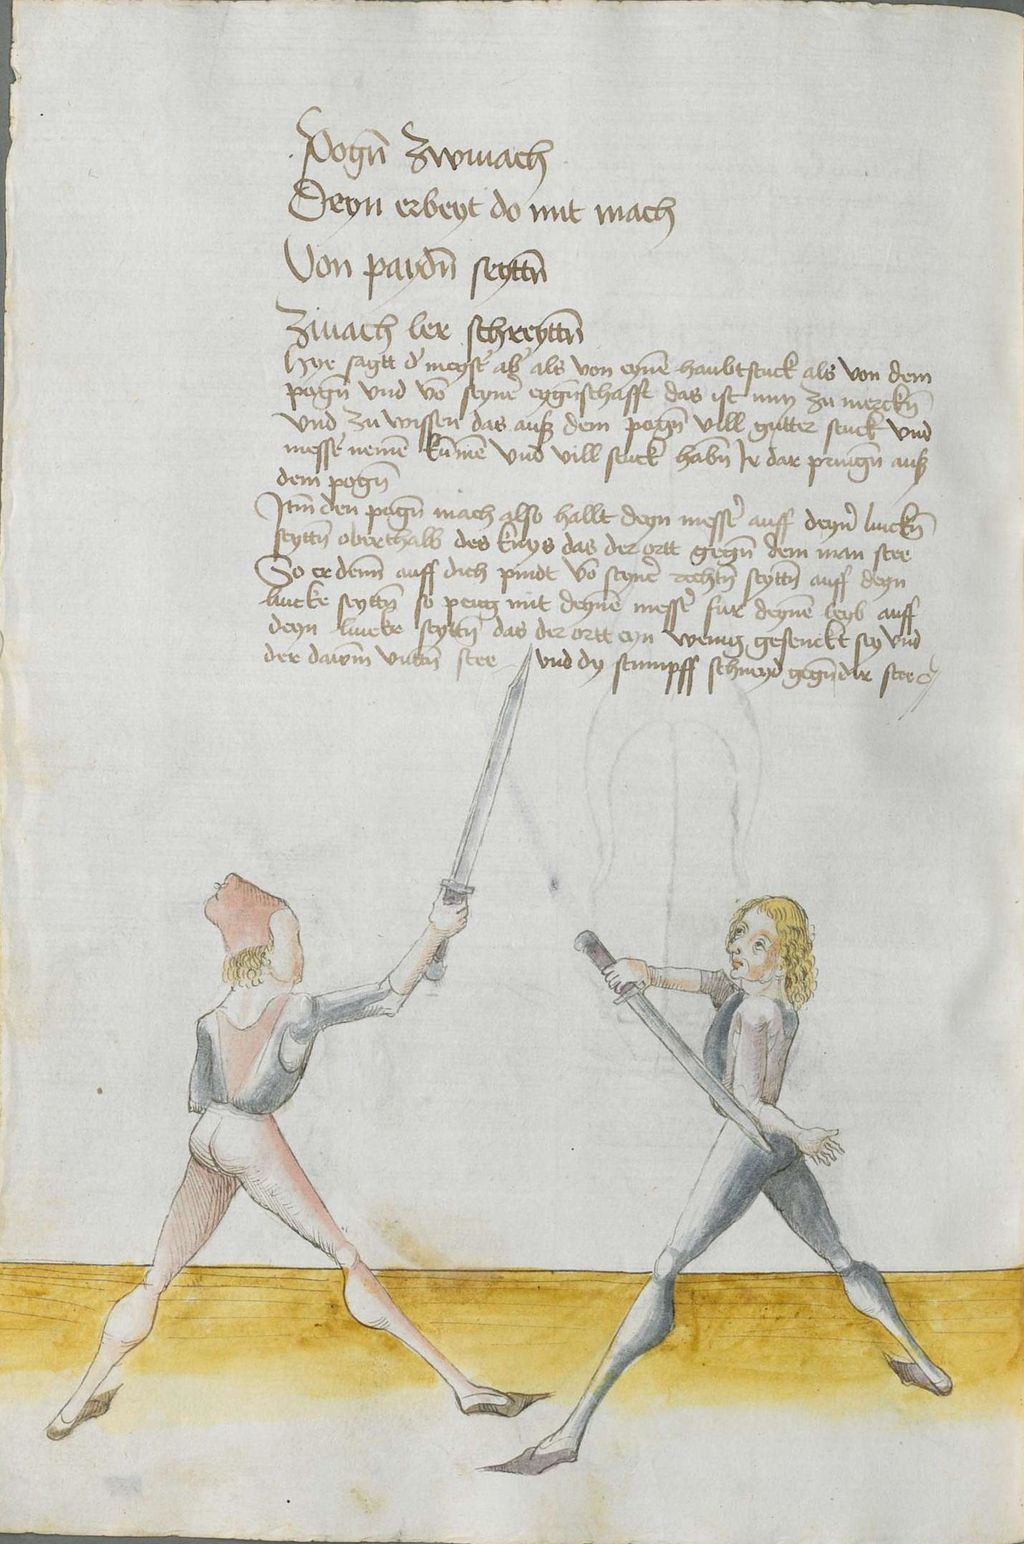 Pogñ Zwmach
Deyn erbeyt do mit mach
Von paydñ seyttñ
Zwach ler schreyttñ
Hye sagtt d' meyst' als von eynē haubtstuck als von dem
pogñ und vō seyner eygñschafft das ist nun zu merckñ
und zu wissen das auß dem pogñ vill gutter stuck und
messer nemē kumē und vill stuck habñ Ir dar pringñ auß
dem pogñ
Itm̄ den pogñ mach also hallt deyn messer auff deyner linckñ
seyttñ oberthalb des knys das der ortt gegñ dem man stee
So er denn auff dich pindt vō seyner rechtñ seyttñ auff deyn
lincke seyttñ so peug mit deynē messer fur deynē leyb auff
deyn lincke seyttñ das der ortt eyn wenig gesenckt sey und
der dawm untñ stee und dy stumpff schneyd gegñ dir stee